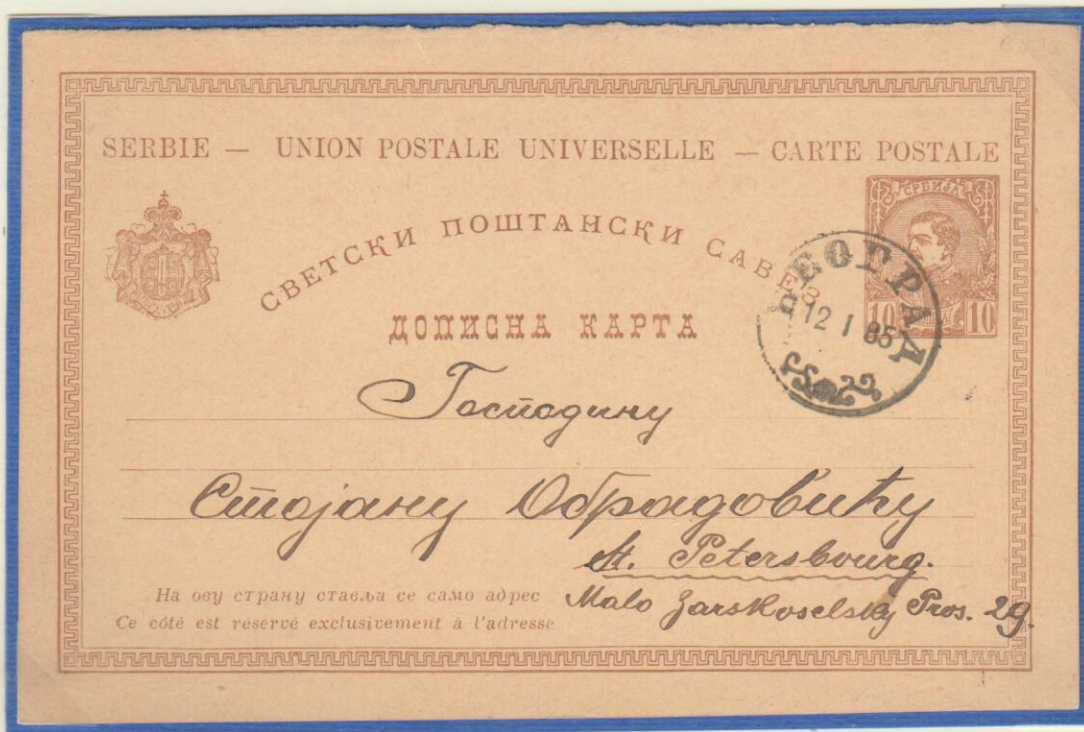 SERBIE — UNION POSTALE UNIVERSELLE — CARTE POSTALE
СРБИЈА
10 10
СВЕТСКИ ПОШТАНСКИ САВЕЗ
БЕОГРАД
12 I 85
ДОПИСНА КАРТА
Господину
Стојану Обрадовићу
St. Petersbourg.
Malo Zarskoselsky Pros. 29.
На ову страну ставља се само адрес
Ce côté est réservé exclusivement à l'adresse